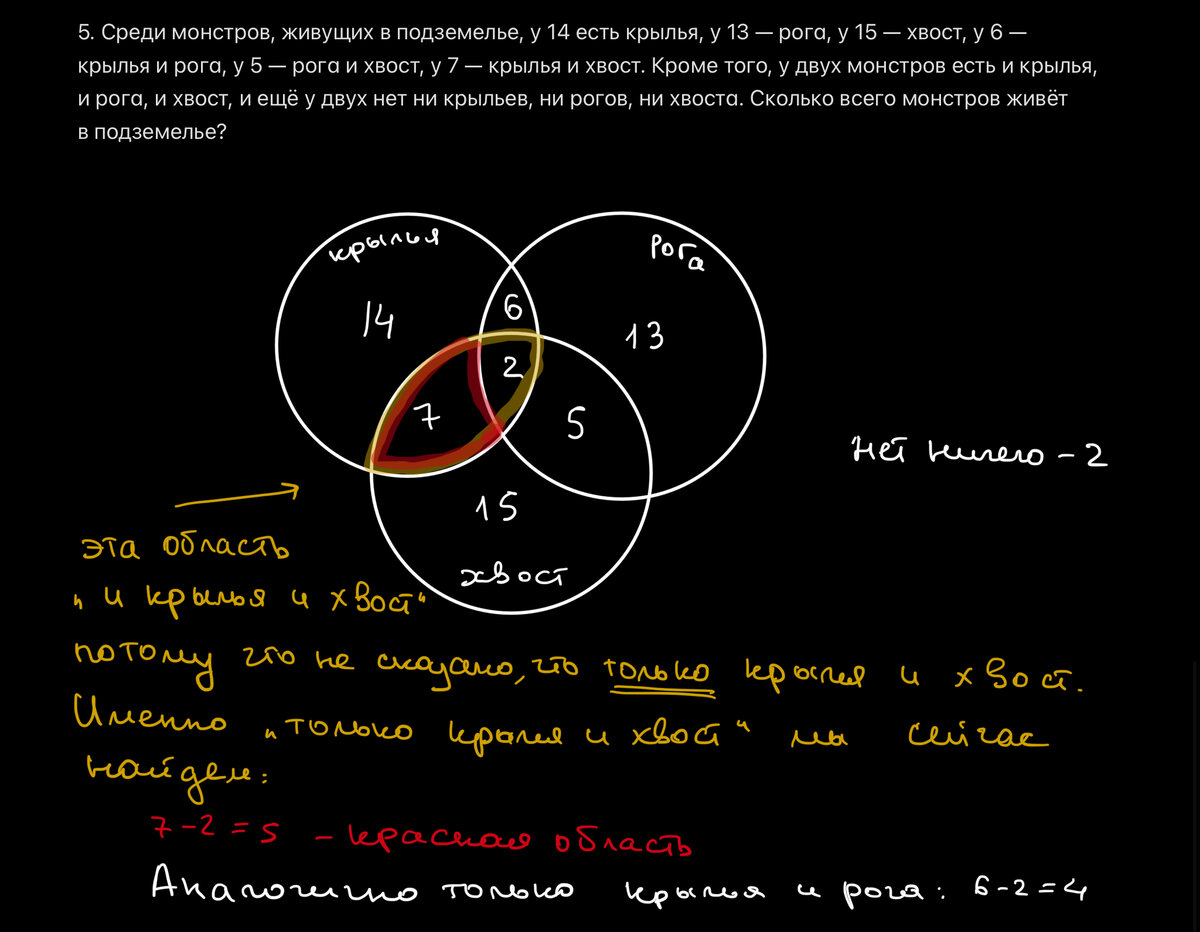 5. Среди монстров, живущих в подземелье, у 14 есть крылья, у 13 — рога, у 15 — хвост, у 6 —
крылья и рога, у 5 — рога и хвост, у 7 — крылья и хвост. Кроме того, у двух монстров есть и крылья,
и рога, и хвост, и ещё у двух нет ни крыльев, ни рогов, ни хвоста. Сколько всего монстров живёт
в подземелье?
крылья
Рога
14
6
13
2
7
5
нет ничего - 2
15
хвост
эта область
„и крылья и хвост“
потому что не сказано, что только крылья и хвост.
Именно „только крылья и хвост“ мы сейчас
найдем:
7-2=5 - красная область
Аналогично только крылья и рога: 6-2=4